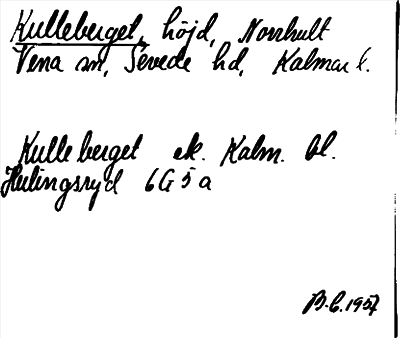 Kulleberget, höjd, Norrhult
Vena sn, Sevede hd, Kalmar l.
Kulleberget ek. Kalm. bl.
Hulingsryd 6G5a
B.E. 1957